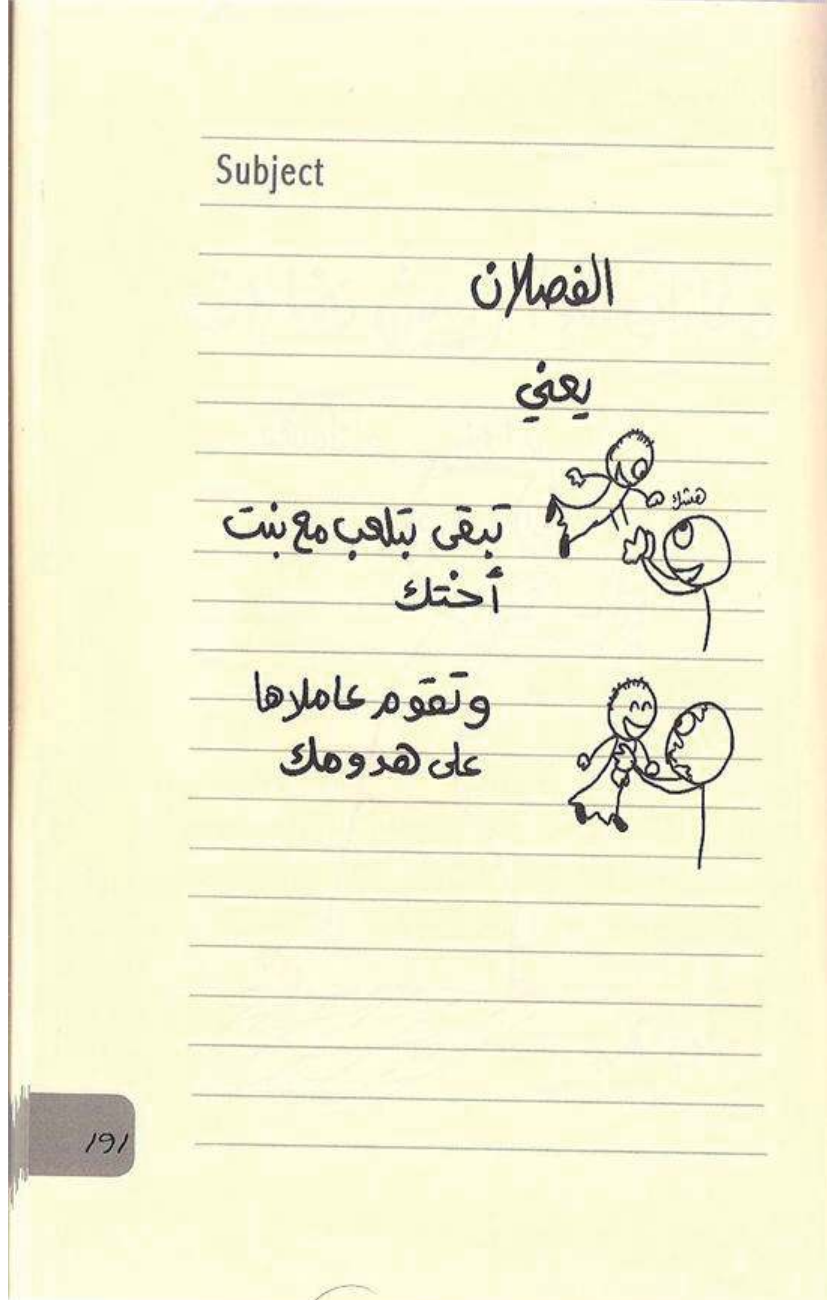 Subject
الفصلان
يعني
هشك
تبقى بتلعب مع بنت
أختك
وتقوم عاملاها
على هدومك
191